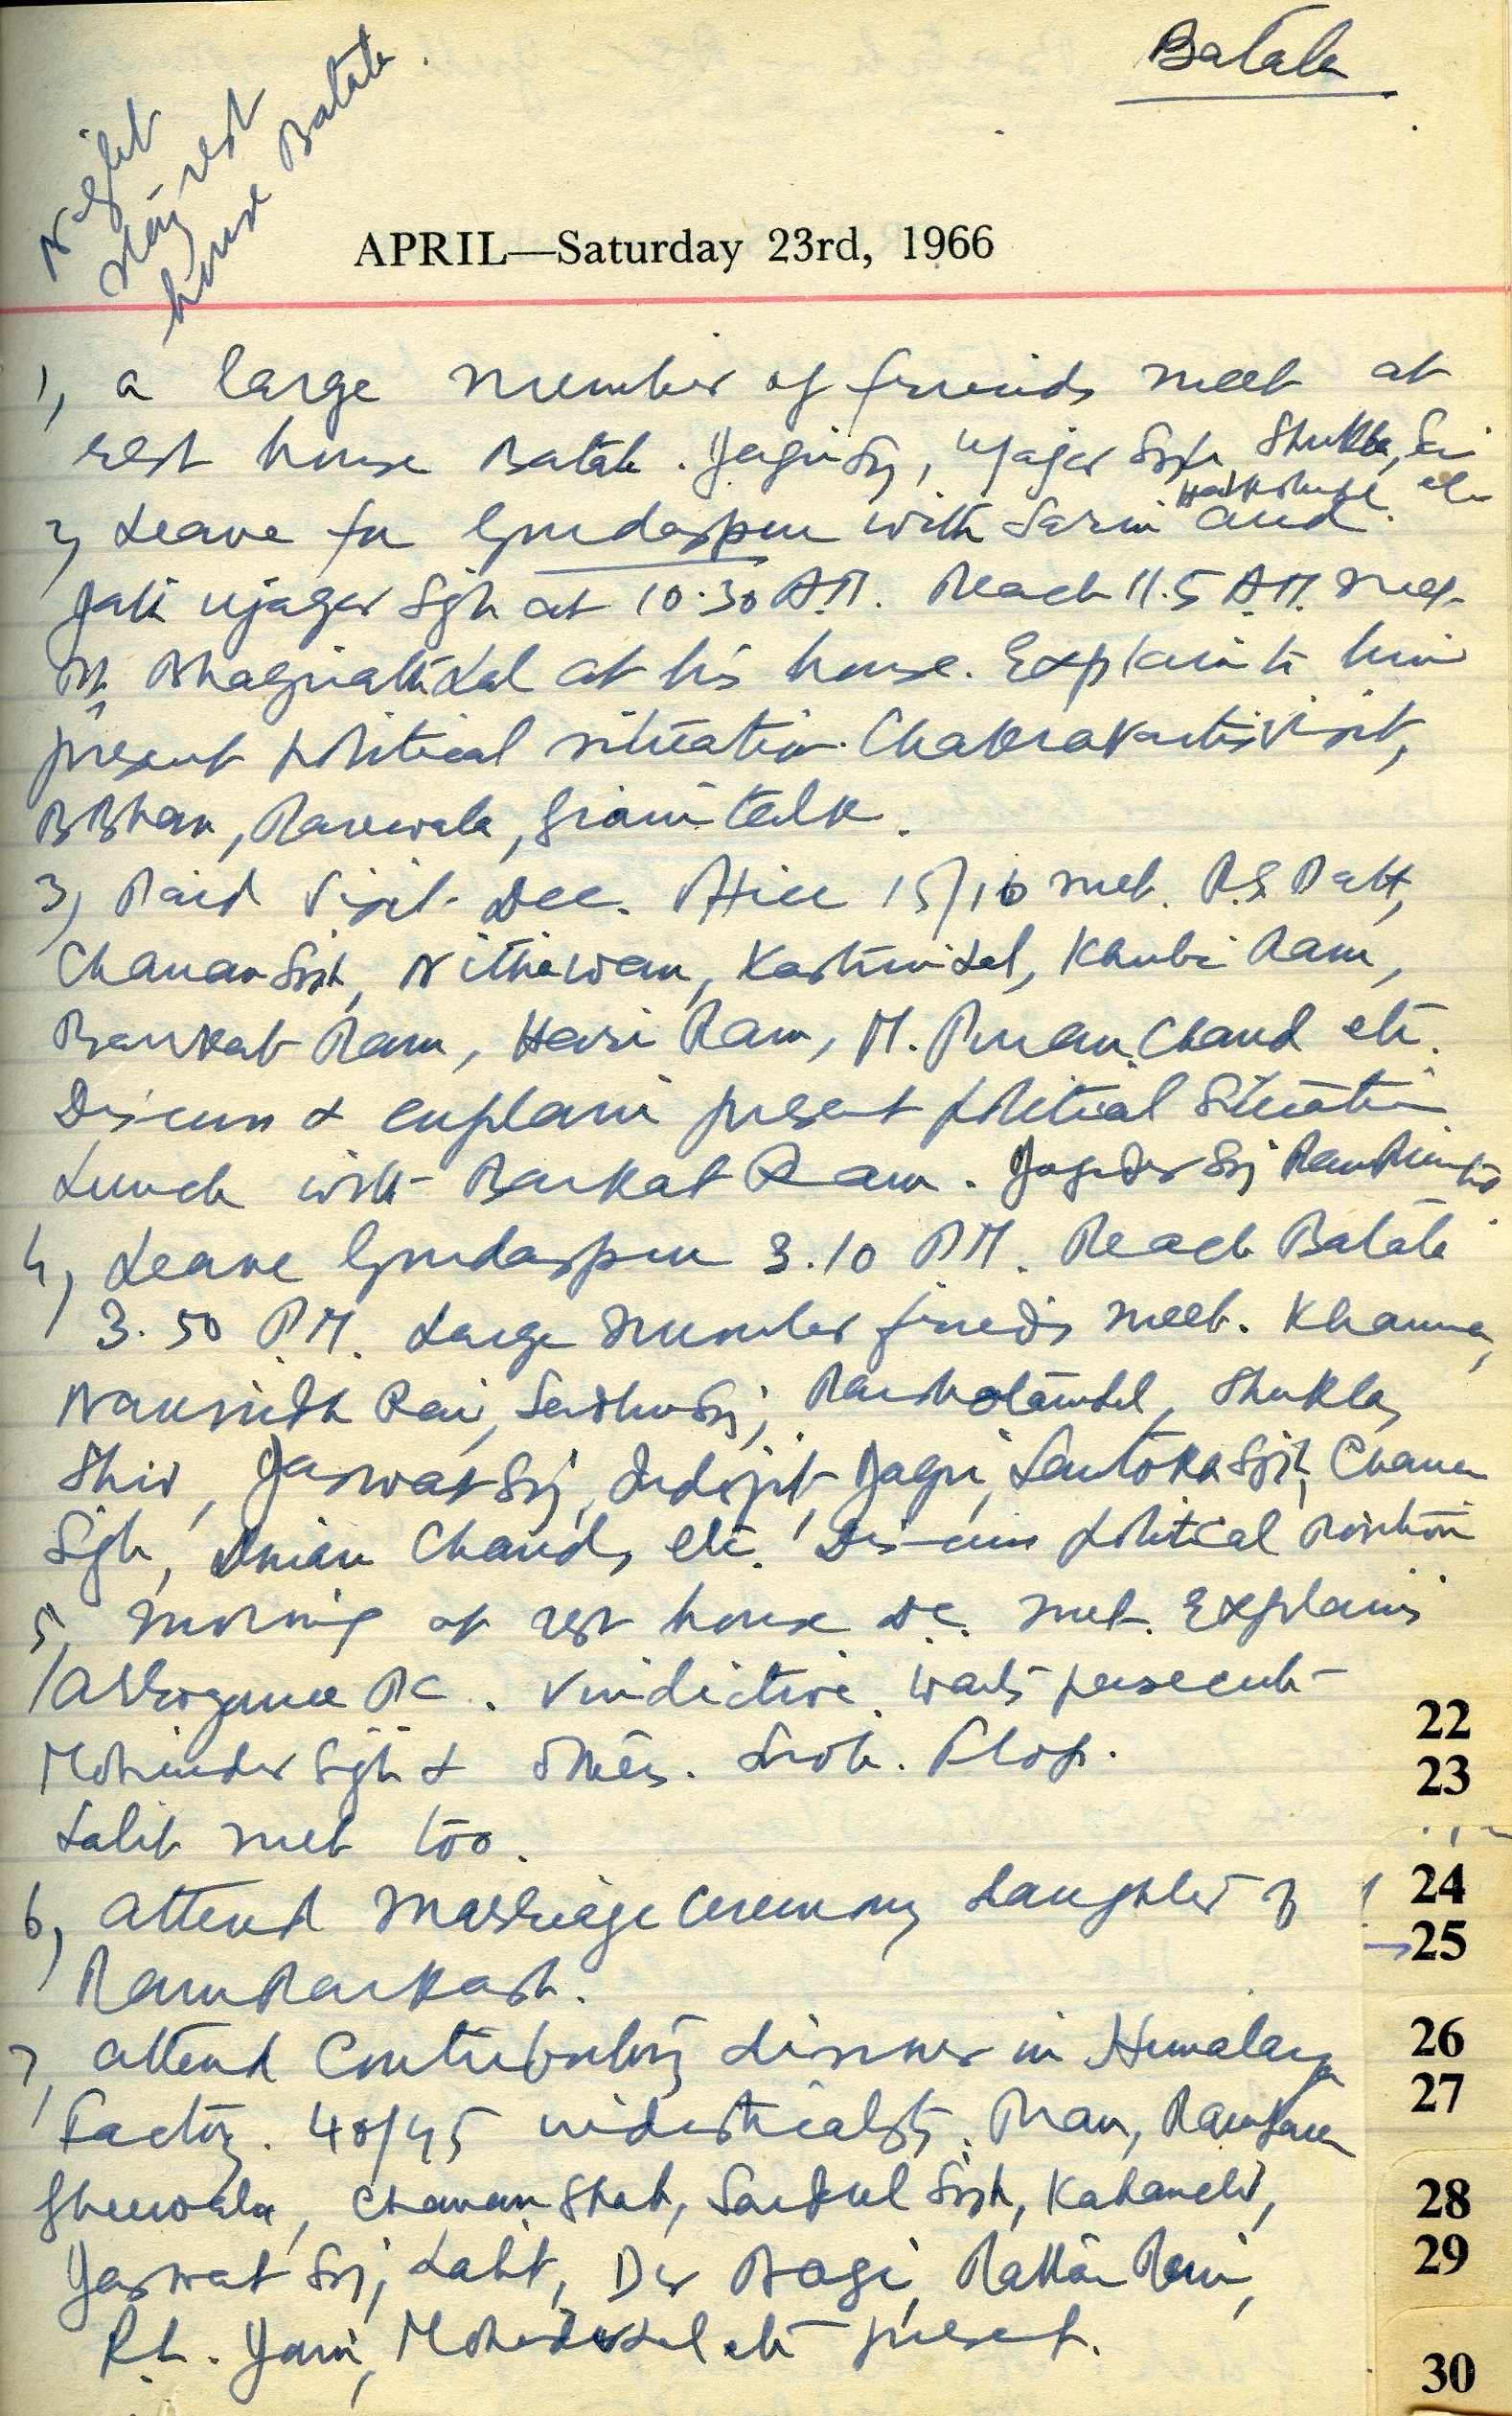 Batala
Night
stay rest
house Batala.
APRIL—Saturday 23rd, 1966
1, a large number of friends meet at
rest house Batala. Jagir Sgh, Ujagar Sgh, Shukla,
2, Leave for Gurdaspur with Sarin and
Ujagar Sgh at 10.30 A.M. Reach 11.5 A.M. meet
at his house. Explain to him
present political situation. Chakravarti's visit,
B Bhan, Rarewala, Giani talk.
3, Paid visit Dcc. Office 15/16 met.
Chanan Sgh, Nithawan, Kasturi Lal, Khubi Ram,
Barkat Ram, Hari Ram, M. Puran Chand etc.
Discuss & explain present political situation
Lunch with Barkat Ram.
4, Leave Gurdaspur 3.10 P.M. Reach Batala
3.50 P.M. Large number friends meet. Khanna,
Naunidh Rai, Sadhu Sgh, Shukla,
Shiv, Jaswat Sgh, Jagir, Santokh Sgh, Chanan
Sgh, Chand, etc. Discuss political position
5, Morning at rest house D.C. met. Explains
arrogance vindictive. wants persecute
Mohinder Sgh & others. Flop.
Lalit met too.
6, attend marriage ceremony daughter of
Ram Parkash.
7, attend Contributory dinner in Himalaya
Factory. 40/45 industrialists. Pran,
Gheewala, Chanan Shah, Sardul Sgh,
Jaswat Sgh, Lalit, Dev Bagi, Rattan
Mohinder Lal etc present.
22
23
24
25
26
27
28
29
30